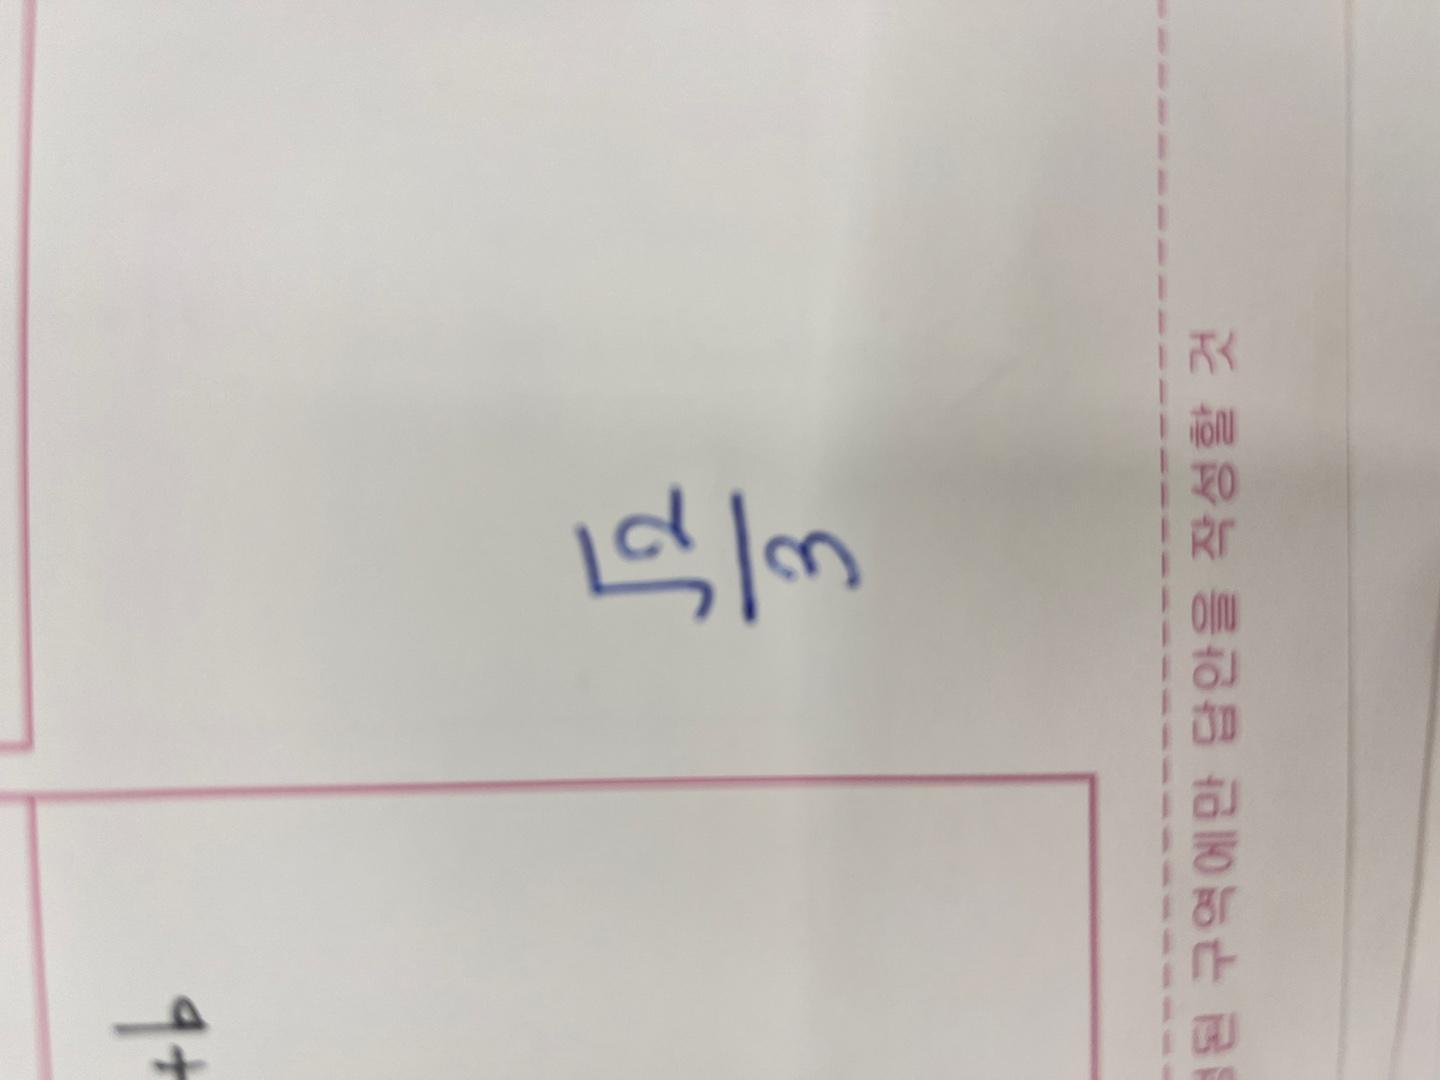 √2/3
구역에만 답안을 작성할 것